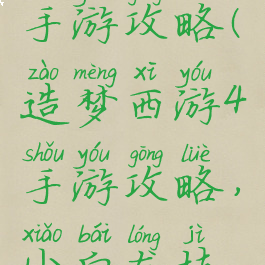 手游攻略(
zào mèng xī yóu
造梦西游4
shǒu yóu gōng lüè
手游攻略,
xiǎo bái lóng jì